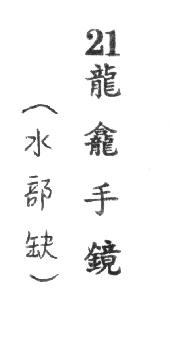 21龍龕手鏡
（水部缺）